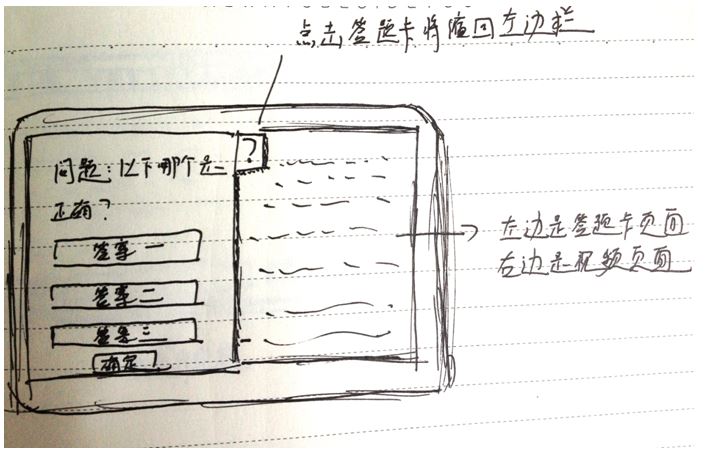 点击答题卡将缩回左边栏
?
问题:以下哪个是
正确?
答案一
答案二
答案三
确定
左边是答题卡页面
右边是视频页面